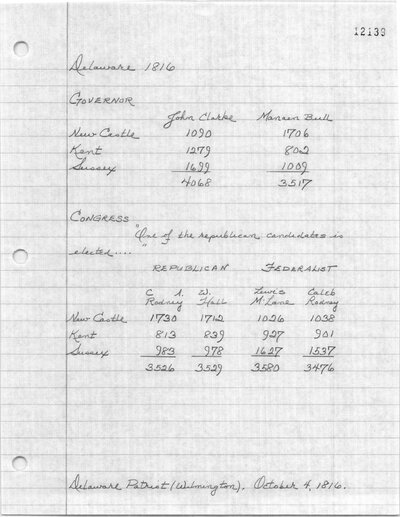 12139
Delaware 1816
GOVERNOR
John Clarke Manaen Bull
New Castle 1090 1706
Kent 1279 802
Sussex 1699 1009
4068 3517
CONGRESS
"One of the republican candidates is
elected...."
REPUBLICAN FEDERALIST
C. A. W. Lewis Caleb
Rodney Hall McLane Rodney
New Castle 1730 1712 1026 1038
Kent 813 839 927 901
Sussex 983 978 1627 1537
3526 3529 3580 3476
Delaware Patriot (Wilmington). October 4, 1816.